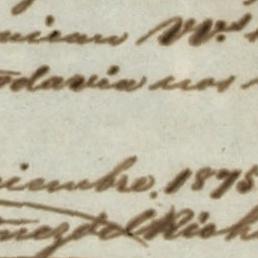 nican VV.s
odavia nos
iembre, 1875
nez del Rich